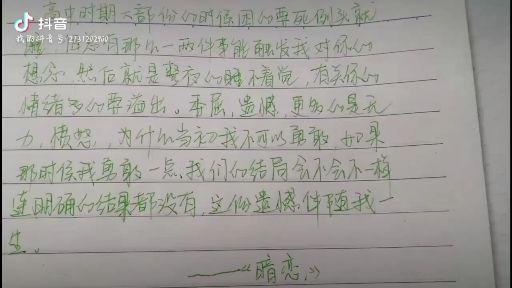 抖音
我的抖音号:2131202900
高中时期大部份的时候困的要死倒头就
但总有那么一两件事能触发我对你的
想念,然后就是整夜的睡不着觉,有关你的
情绪多的要溢出。委屈,遗憾,更多的是无
力,愤怒,为什么当初我不可以勇敢,如果
那时候我勇敢一点,我们的结局会不会不一样
连明确的结果都没有,这份遗憾伴随我一
生。
——《暗恋》